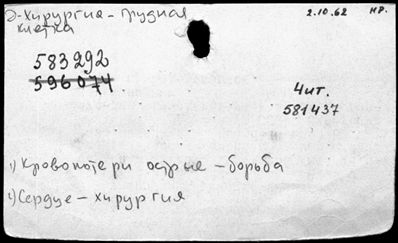 Э-Хирургия - грудная
клетка
2.10.62
НР.
583292
596074.
Чит.
581437
1) Кровопотери острые - борьба
2) Сердце - хирургия